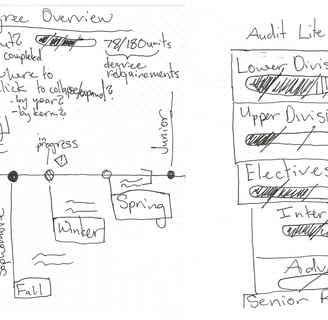 ree Overview
ut?
completed
78/180 units
degree
requirements
where to
click to collapse/expand?
- by year?
- by term?
in
progress
Junior
Sophomore
Fall
Winter
Spring
Audit Lite
Lower Divis
Upper Divisi
Electives
Inter
Adv
Senior